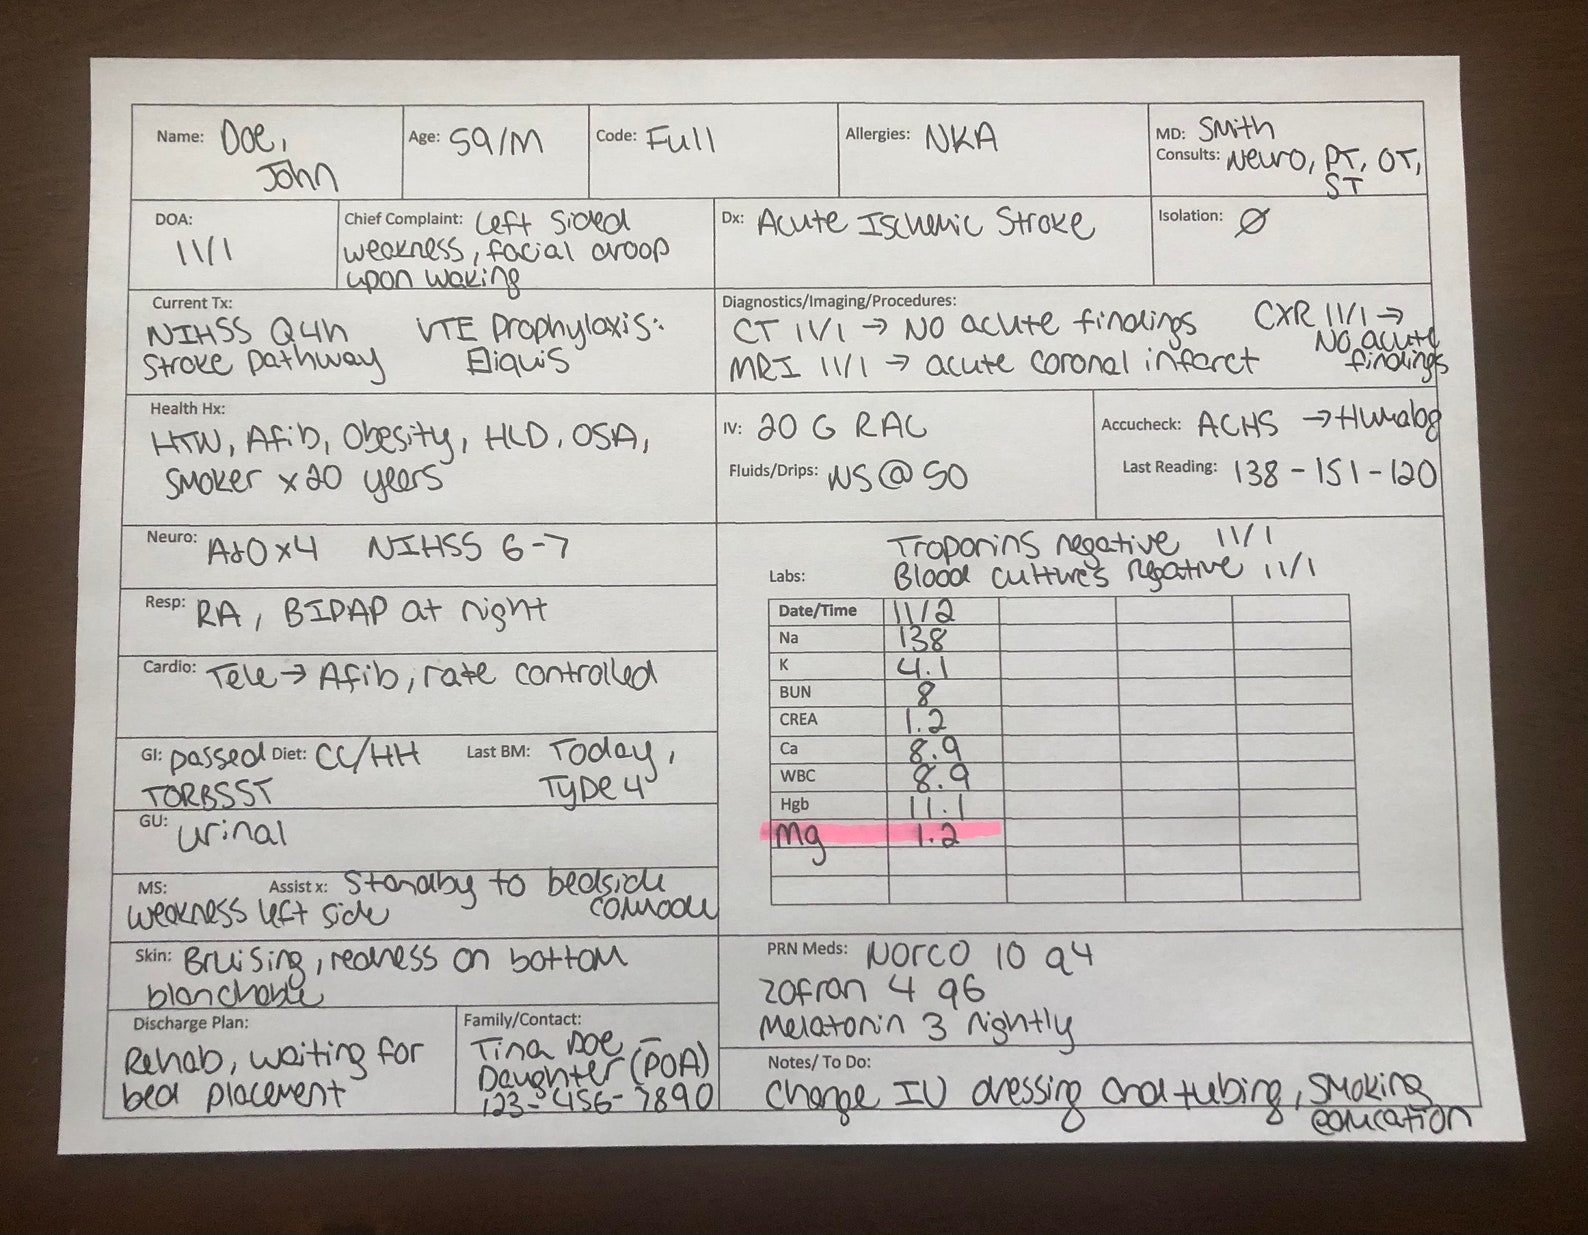 Name: Doe, John
Age: 59/M
Code: Full
Allergies: NKA
MD: Smith
Consults: Neuro, PT, OT,
ST
DOA:
11/1
Chief Complaint: Left sided
weakness, facial droop
upon waking
Dx: Acute Ischemic Stroke
Isolation: Ø
Current Tx:
NIHSS Q4h
Stroke pathway
VTE Prophylaxis:
Eliquis
Diagnostics/Imaging/Procedures:
CT 11/1 → No acute findings
MRI 11/1 → acute coronal infarct
CXR 11/1 →
No acute
findings
Health Hx:
HTN, Afib, Obesity, HLD, OSA,
Smoker x20 years
IV: 20 G RAC
Fluids/Drips: NS @ 50
Accucheck: ACHS → Humalog
Last Reading: 138 - 151 - 120
Neuro: A&O x4 NIHSS 6-7
Resp: RA, BIPAP at night
Cardio: Tele → Afib, rate controlled
GI: passed
TORBSST
Diet: CC/HH
Last BM: Today,
Type 4
GU: urinal
MS:
weakness left side
Assist x: Standby to bedside
comode
Skin: Bruising, redness on bottom
blanchable
Discharge Plan:
Rehab, waiting for
bed placement
Family/Contact:
Tina Doe –
Daughter (POA)
123-456-7890
Troponins negative 11/1
Labs: Blood cultures negative 11/1
Date/Time 11/2
Na 138
K 4.1
BUN 8
CREA 1.2
Ca 8.9
WBC 8.9
Hgb 11.1
Mg 1.2
PRN Meds: Norco 10 q4
Zofran 4 q6
Melatonin 3 nightly
Notes/ To Do:
Change IV dressing and tubing, smoking
education